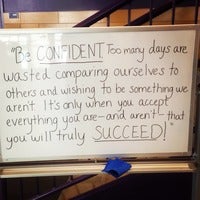 "Be CONFIDENT Too many days are
wasted comparing ourselves to
others and wishing to be something we
aren't. It's only when you accept
everything you are—and aren't—that
you will truly SUCCEED!"